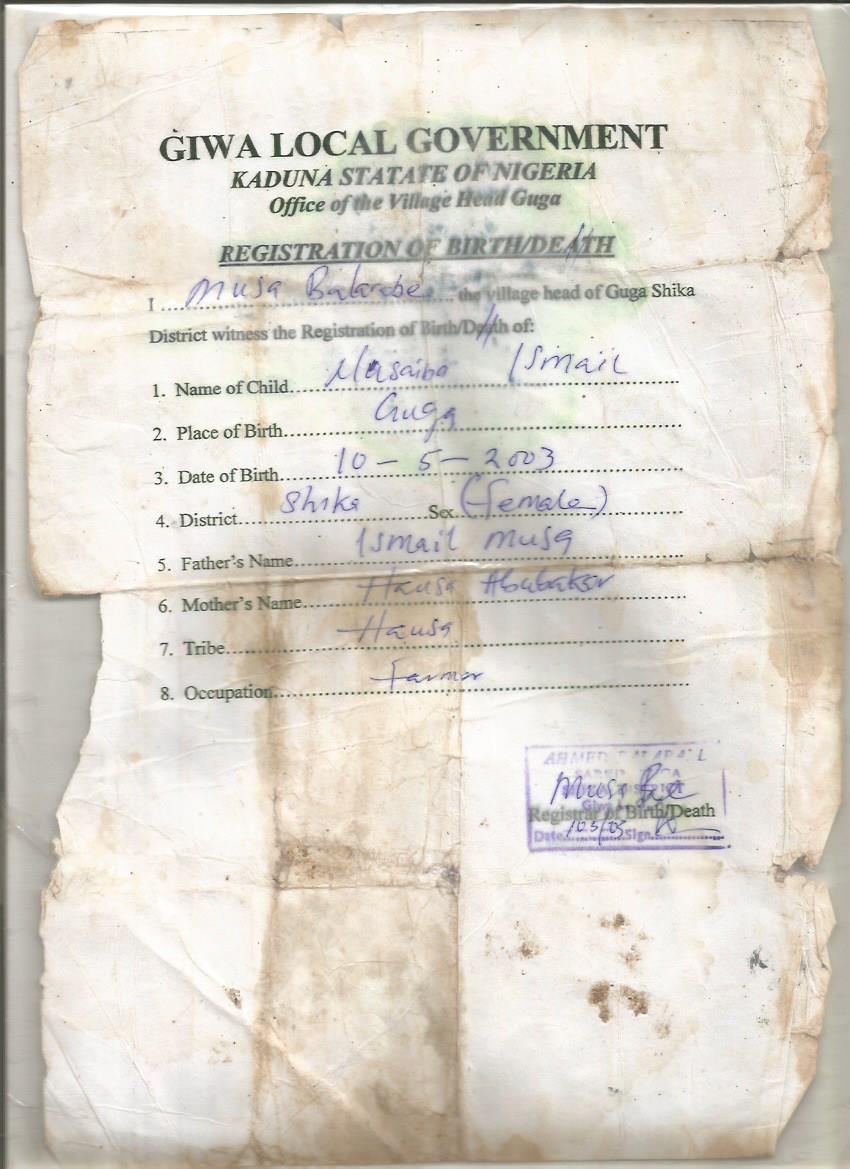 GIWA LOCAL GOVERNMENT
KADUNA STATATE OF NIGERIA
Office of the Village Head Guga
REGISTRATION OF BIRTH/DEATH
I .... Musa Balarabe .... the village head of Guga Shika
District witness the Registration of Birth/Death of:
1. Name of Child.... Ismail
2. Place of Birth.... Guga
3. Date of Birth.... 10 - 5 - 2003
4. District.... Shika ....Sex.... (Female)
5. Father's Name.... Ismail Musa
6. Mother's Name.... Hausa Abubakar
7. Tribe.... Hausa
8. Occupation.... Farmer
AHMED
Musa
Registrar of Birth/Death
Date........Sign........